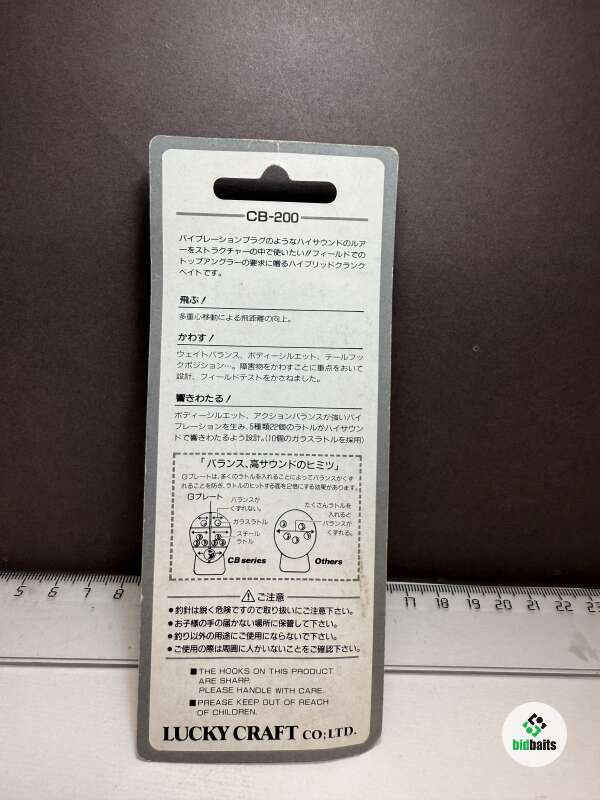 CB-200
バイブレーションプラグのようなハイサウンドのルア
ーをストラクチャーの中で使いたい!!フィールドでの
トップアングラーの要求に贈るハイブリッドクランク
ベイトです。
飛ぶ!
多重心移動による飛距離の向上。
かわす!
ウェイトバランス、ボディーシルエット、テールフッ
クポジション…。障害物をかわすことに重点をおいて
設計、フィールドテストをかさねました。
響きわたる!
ボディーシルエット、アクションバランスが強いバイ
ブレーションを生み、5種類22個のラトルがハイサウン
ドで響きわたるよう設計。(10個のガラスラトルを採用)
「バランス、高サウンドのヒミツ」
Gプレートは、多くのラトルを入れることによってバランスがくず
れることを防ぎ、ラトルのヒットする面を2倍にする効果があります。
Gプレート
バランスが
くずれない。
ガラスラトル
スチール
ラトル
CB series
たくさんラトルを
入れると
バランスが
くずれる。
Others
ご注意
●釣針は鋭く危険ですので取り扱いにご注意下さい。
●お子様の手の届かない場所に保管して下さい。
●釣り以外の用途にご使用にならないで下さい。
●ご使用の際は周囲に人がいないことをご確認下さい。
■THE HOOKS ON THIS PRODUCT
ARE SHARP.
PLEASE HANDLE WITH CARE.
■PREASE KEEP OUT OF REACH
OF CHILDREN.
LUCKY CRAFT CO;LTD.
5 6 7 8
17 18 19 20 21 22 23
bidbaits